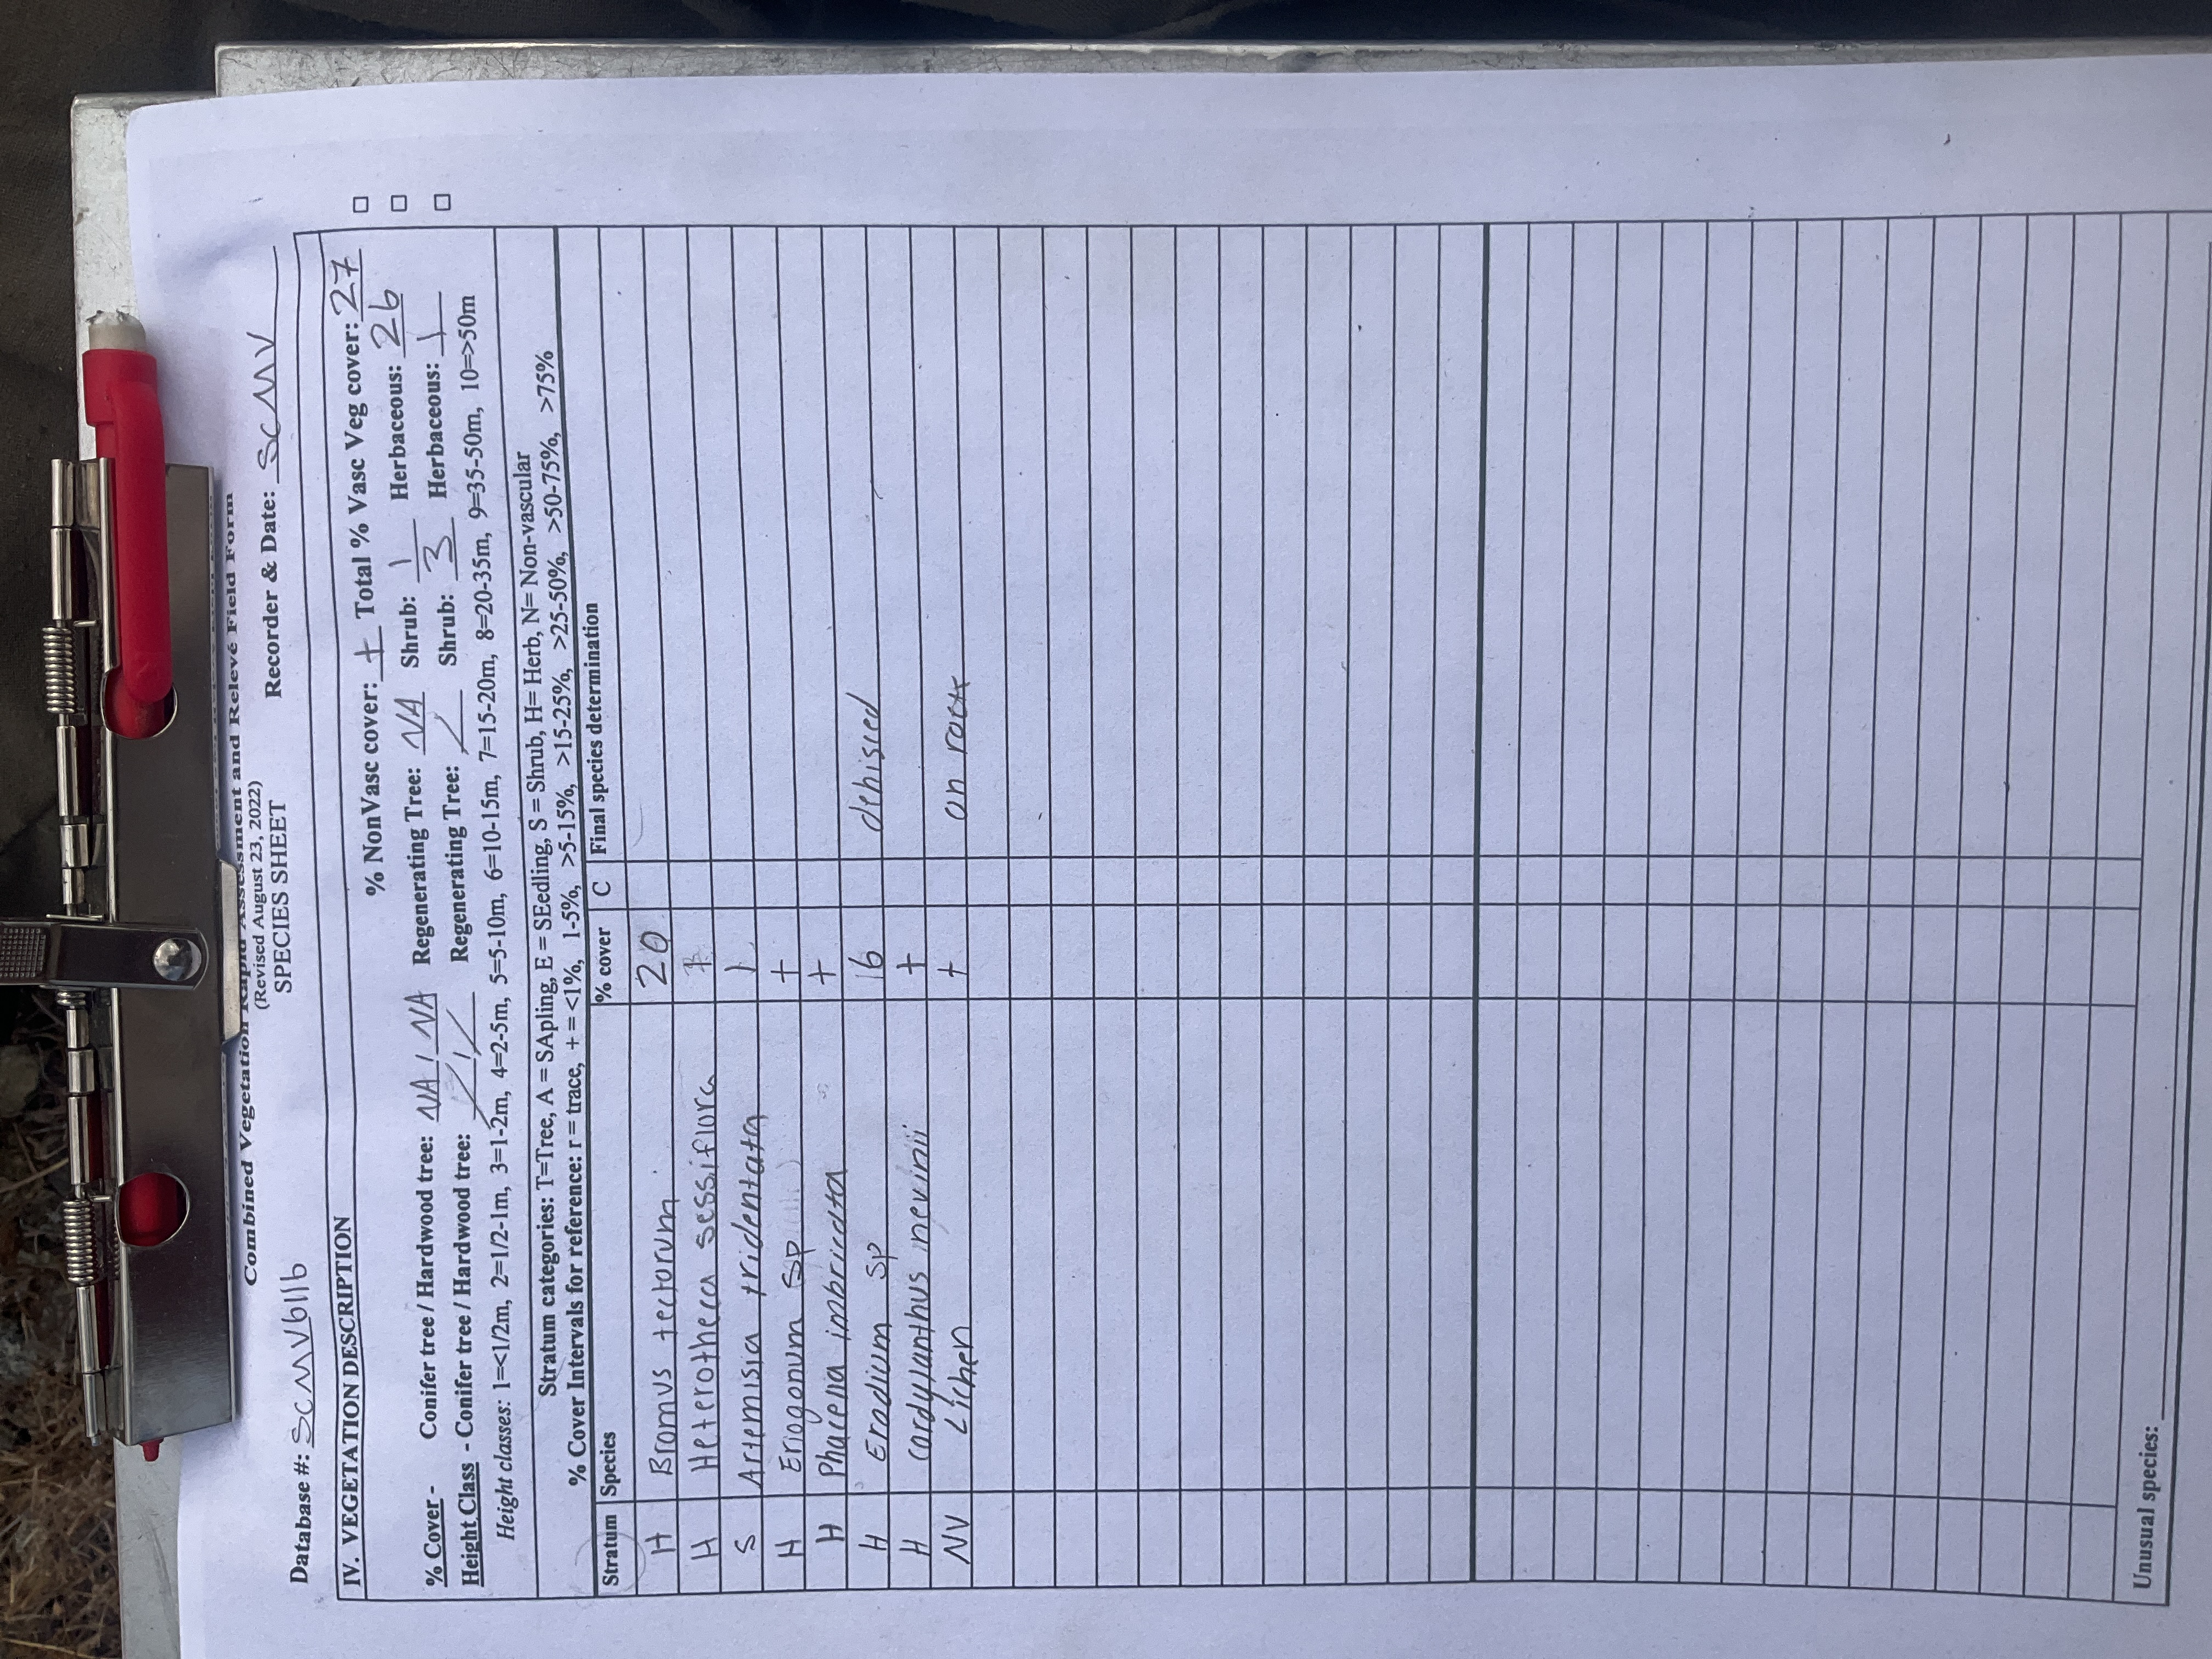 Combined Vegetation Rapid Assessment and Relevé Field Form
(Revised August 23, 2022)
SPECIES SHEET
Database #: SCMV611b Recorder & Date: SCMV
IV. VEGETATION DESCRIPTION
% NonVasc cover: + Total % Vasc Veg cover: 27
% Cover - Conifer tree / Hardwood tree: NA / NA Regenerating Tree: NA Shrub: 1 Herbaceous: 26
Height Class - Conifer tree / Hardwood tree: / / / Regenerating Tree: / Shrub: 3 Herbaceous: 1
Height classes: 1=<1/2m, 2=1/2-1m, 3=1-2m, 4=2-5m, 5=5-10m, 6=10-15m, 7=15-20m, 8=20-35m, 9=35-50m, 10=>50m
Stratum categories: T=Tree, A = SApling, E = SEedling, S = Shrub, H= Herb, N= Non-vascular
% Cover Intervals for reference: r = trace, + = <1%, 1-5%, >5-15%, >15-25%, >25-50%, >50-75%, >75%
Stratum Species % cover C Final species determination
H Bromus tectorum 20
H Heterotheca sessiflora +
S Artemisia tridentata 1
H Eriogonum sp +
H Phacelia imbricata +
H Erodium sp 16 dehisced
H Cordylanthus nevinii +
NV Lichen + on rocks
Unusual species: